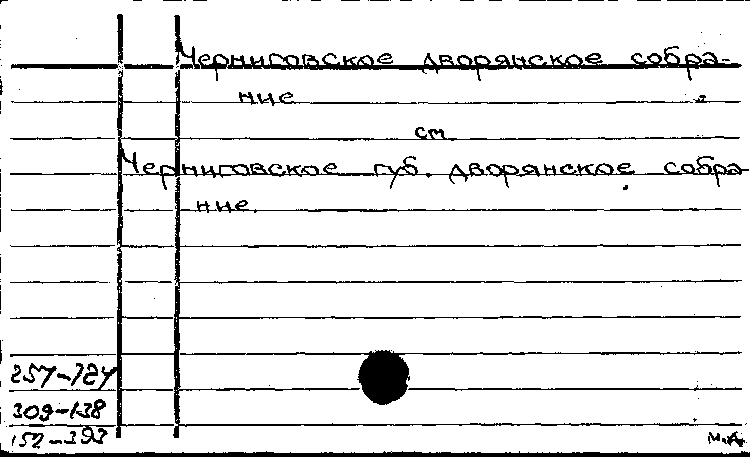 Черниговское дворянское собра-
ние
см
Черниговское губ. дворянское собра
ние.
309-138
152-393
М.Д.